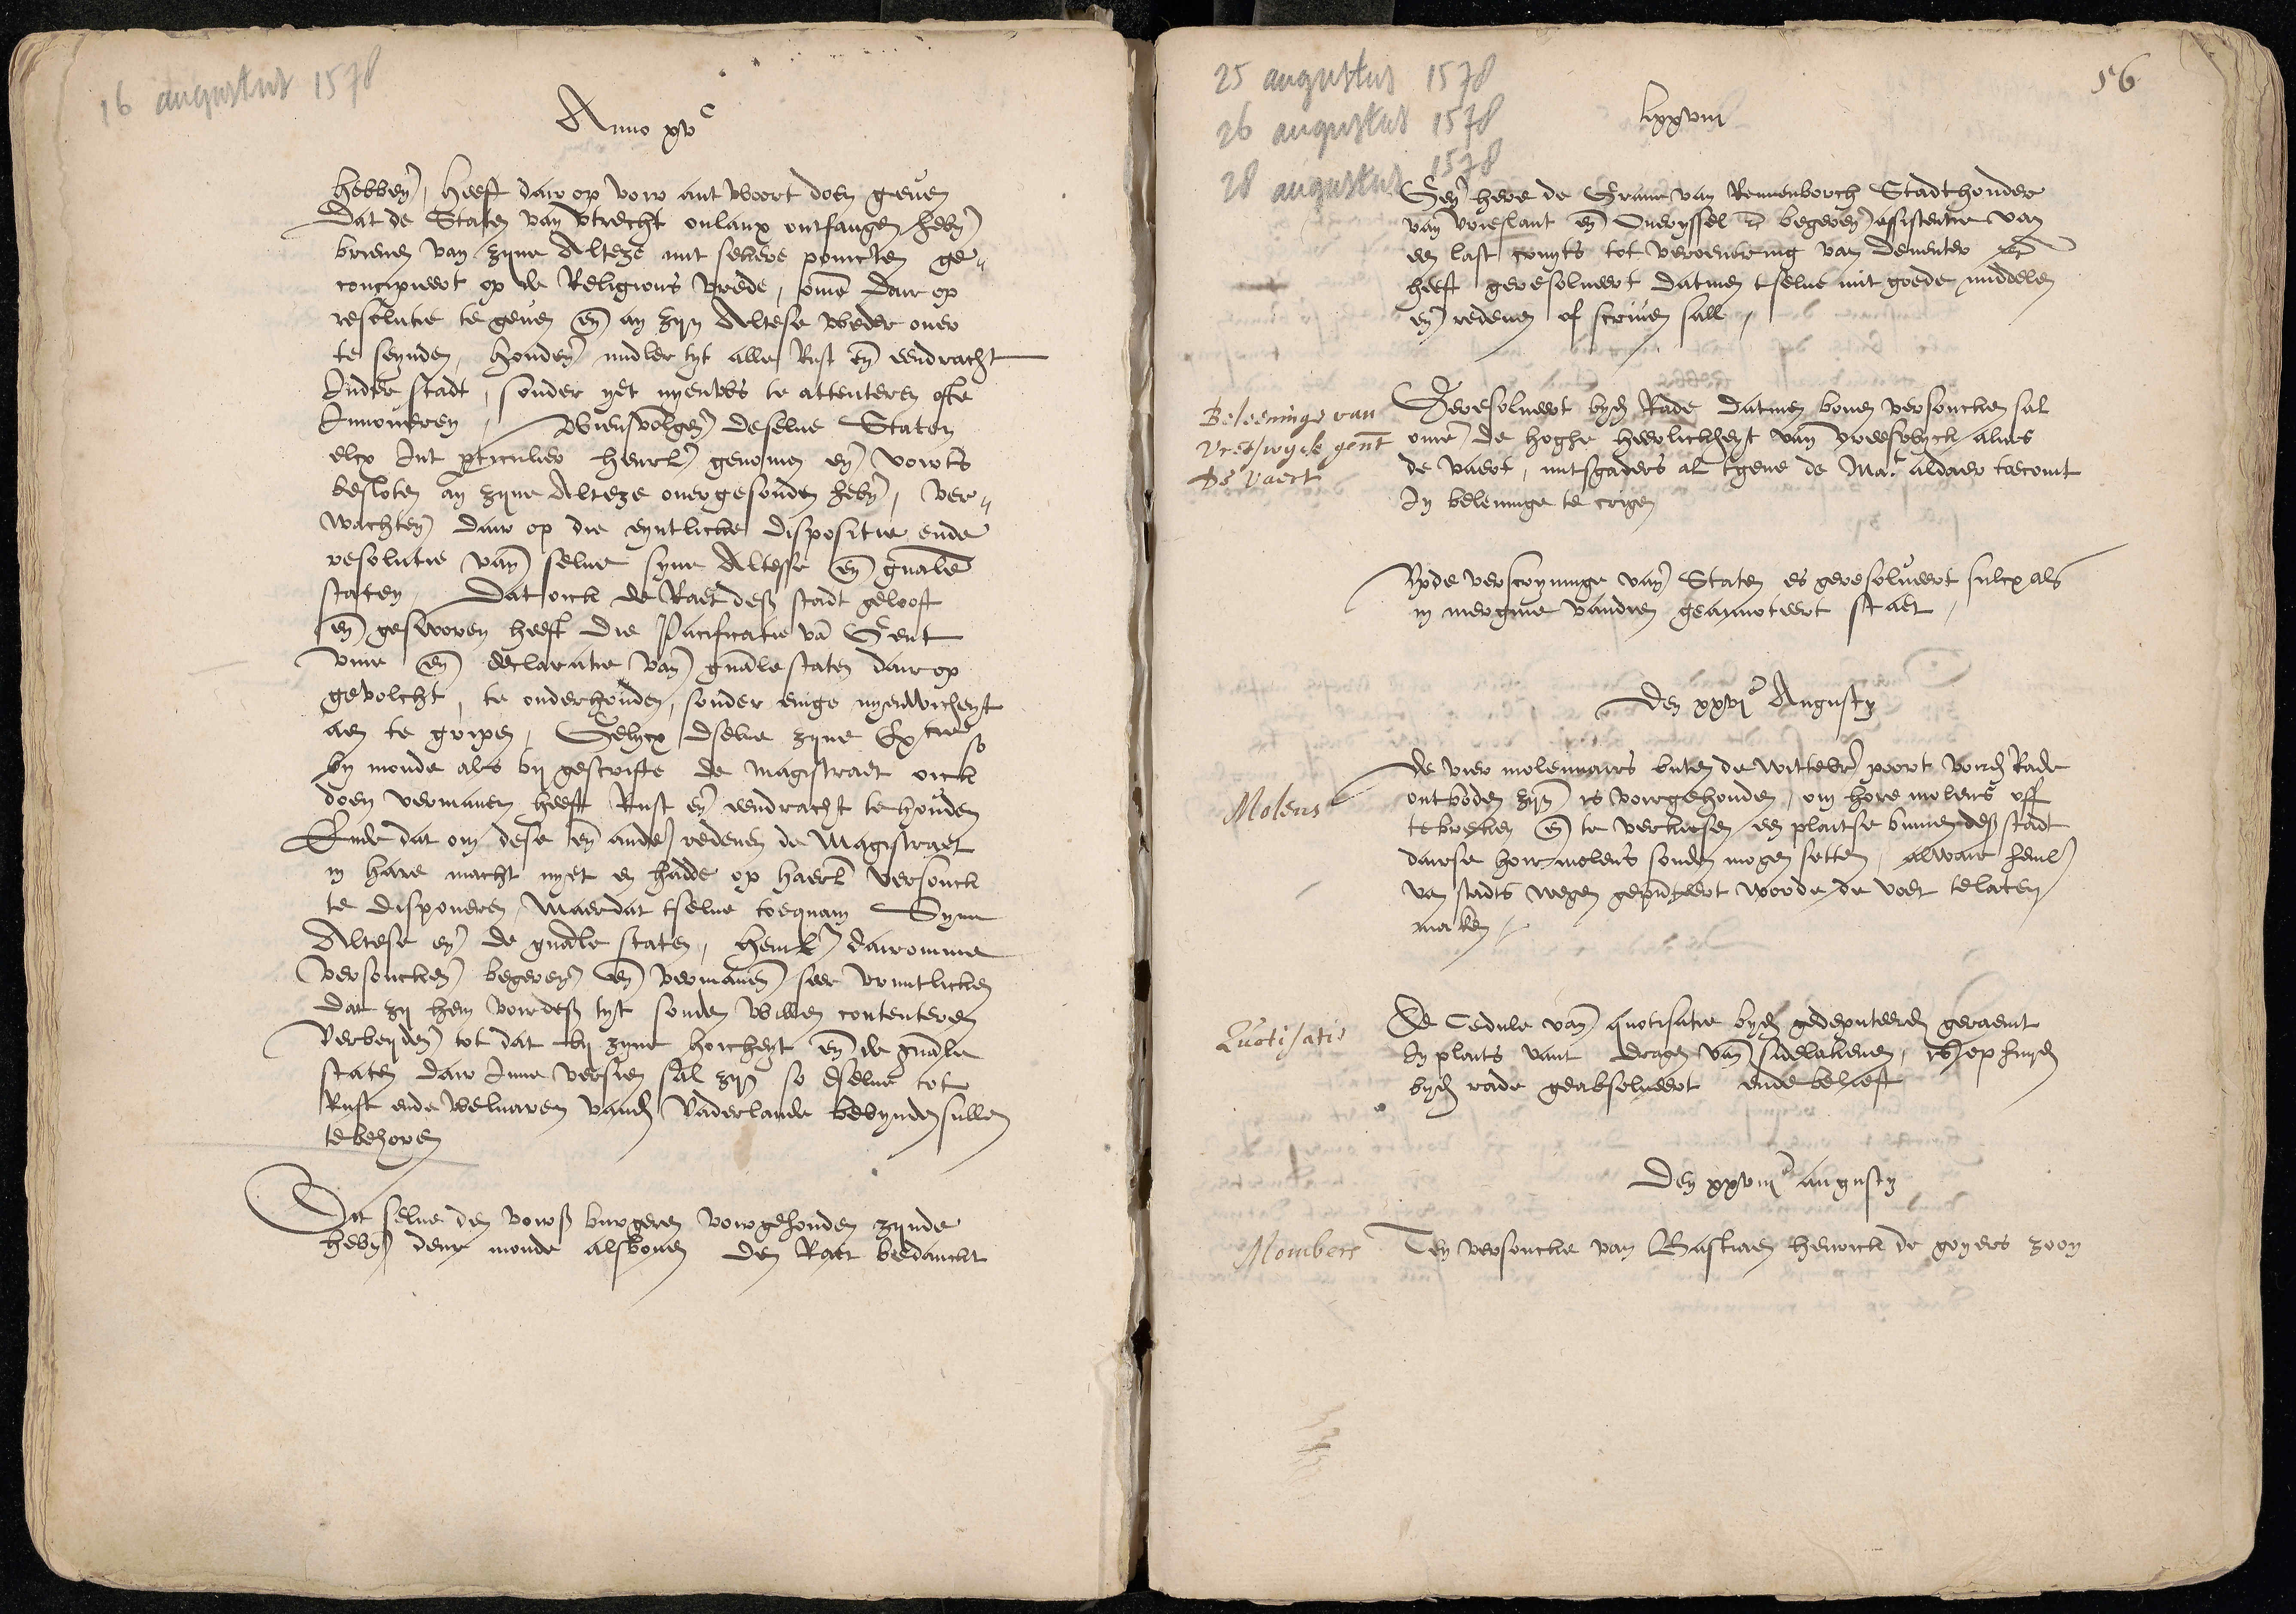 16 augustus 1578
Anno xvc
hebben, heeft dair op voir antwoort doen geven
Dat de Staten van Utrecht onlanx ontfangen hebn
brieven van zyne Alteze mit sekere poincten ge„
concipieert op de Religions vrede, omme dair op
resolutie te geven en an zyn Altese weder over
te seynden, houden midler tyt alle Rust en eendracht
Inder stadt, sonder yet nyeuwes te attenteren ofte
Innoveren, Wiensvolgen deselve Staten
elcx Int particulier genomen en voirts
besloten an zyne Alteze overgesonden hebn, ver„
wachten dair op die eyntlicke dispositie ende
resolutie van selve syne Altesse en gnale
staten, Dat oick de Raet deser stadt gelooft
en gesworen heeft die Pacificatie van Gent
unie en declaratie van gnale staten dair op
gevolcht, te onderhouden, sonder enige nyewicheyt
aen te gripen, Gelycx dselve zyne Extie so
by monde als by gescrifte de magistraet oick
doen vermanen heeft Rust en eendracht te houden
Ende dat om dese en ander redenen de Magistraet
in hare macht nyet en hadde op haerl versouck
te disponeren, Maer dat tselve toequam Syne
Altese en de gnale staten, heurl dairomme
versoucken begeren en vermanen seer vruntlicken
dat zy hem voir deser tyt souden willen contenteren
verbeyden tot dat by zyne hoicheyt en de gnale
staten dair Inne versien sal zyn so dselve tot
Rust ende welvaren vanden vaderlande bevynden sullen
te behoren
Dit selve den voirs burgeren voirgehouden zynde
hebn denr monde alsboven den Raet bedanckt
25 augustus 1578
26 augustus 1578
28 augustus 1578
56
lxxviii
heere de Grave van Rennenborch Stadthouder
van Vrieslant en Overyssel begeren assistentie van
een last tot veroveringe van Deventer
heeft geresolveert datmen tselve mit goede middelen
en redenen of scriven sall,
Beleeninge van
Vreeswyck gent
De Vaert
Geresolveert byden Rade datmen boven versoucken sal
omme de hoghe heerlicheyt van Vreeswyck alias
de vaert, mitsgaders al tgene de Mat aldaer toecomt
In beleninge te crigen
Opde verscryvinge van Staten es geresolveert sulcx als
in mergine vandien geannoteert staet,
Den xxvie Augusty
Molens
De vier molenairs buten de wittevr poort voirden Rade
ontboden zyn is voirgehouden, om hore molens off
te breken en te verkiesen een plaitse binnen deser stadt
dairse hoir molens souden mogen setten, alwair heml
van stadts wegen gepntert worde de voet te laten
maken,
Quotisatie
De Cedule van quotisatie byden gedeputeerden geraemt
In plaits vant dragen van , is op huyden
byden rade geabsolveert ende belieft
Den xxviiie augusty
Mombers
Ten versoucke van Bastiaen henrick de goyers zoon